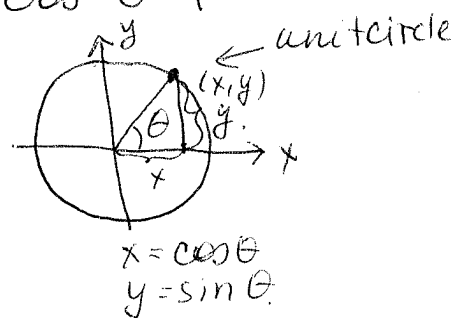 y
unitcircle
(x,y)
θ
y.
x
x
x = cosθ
y = sinθ.